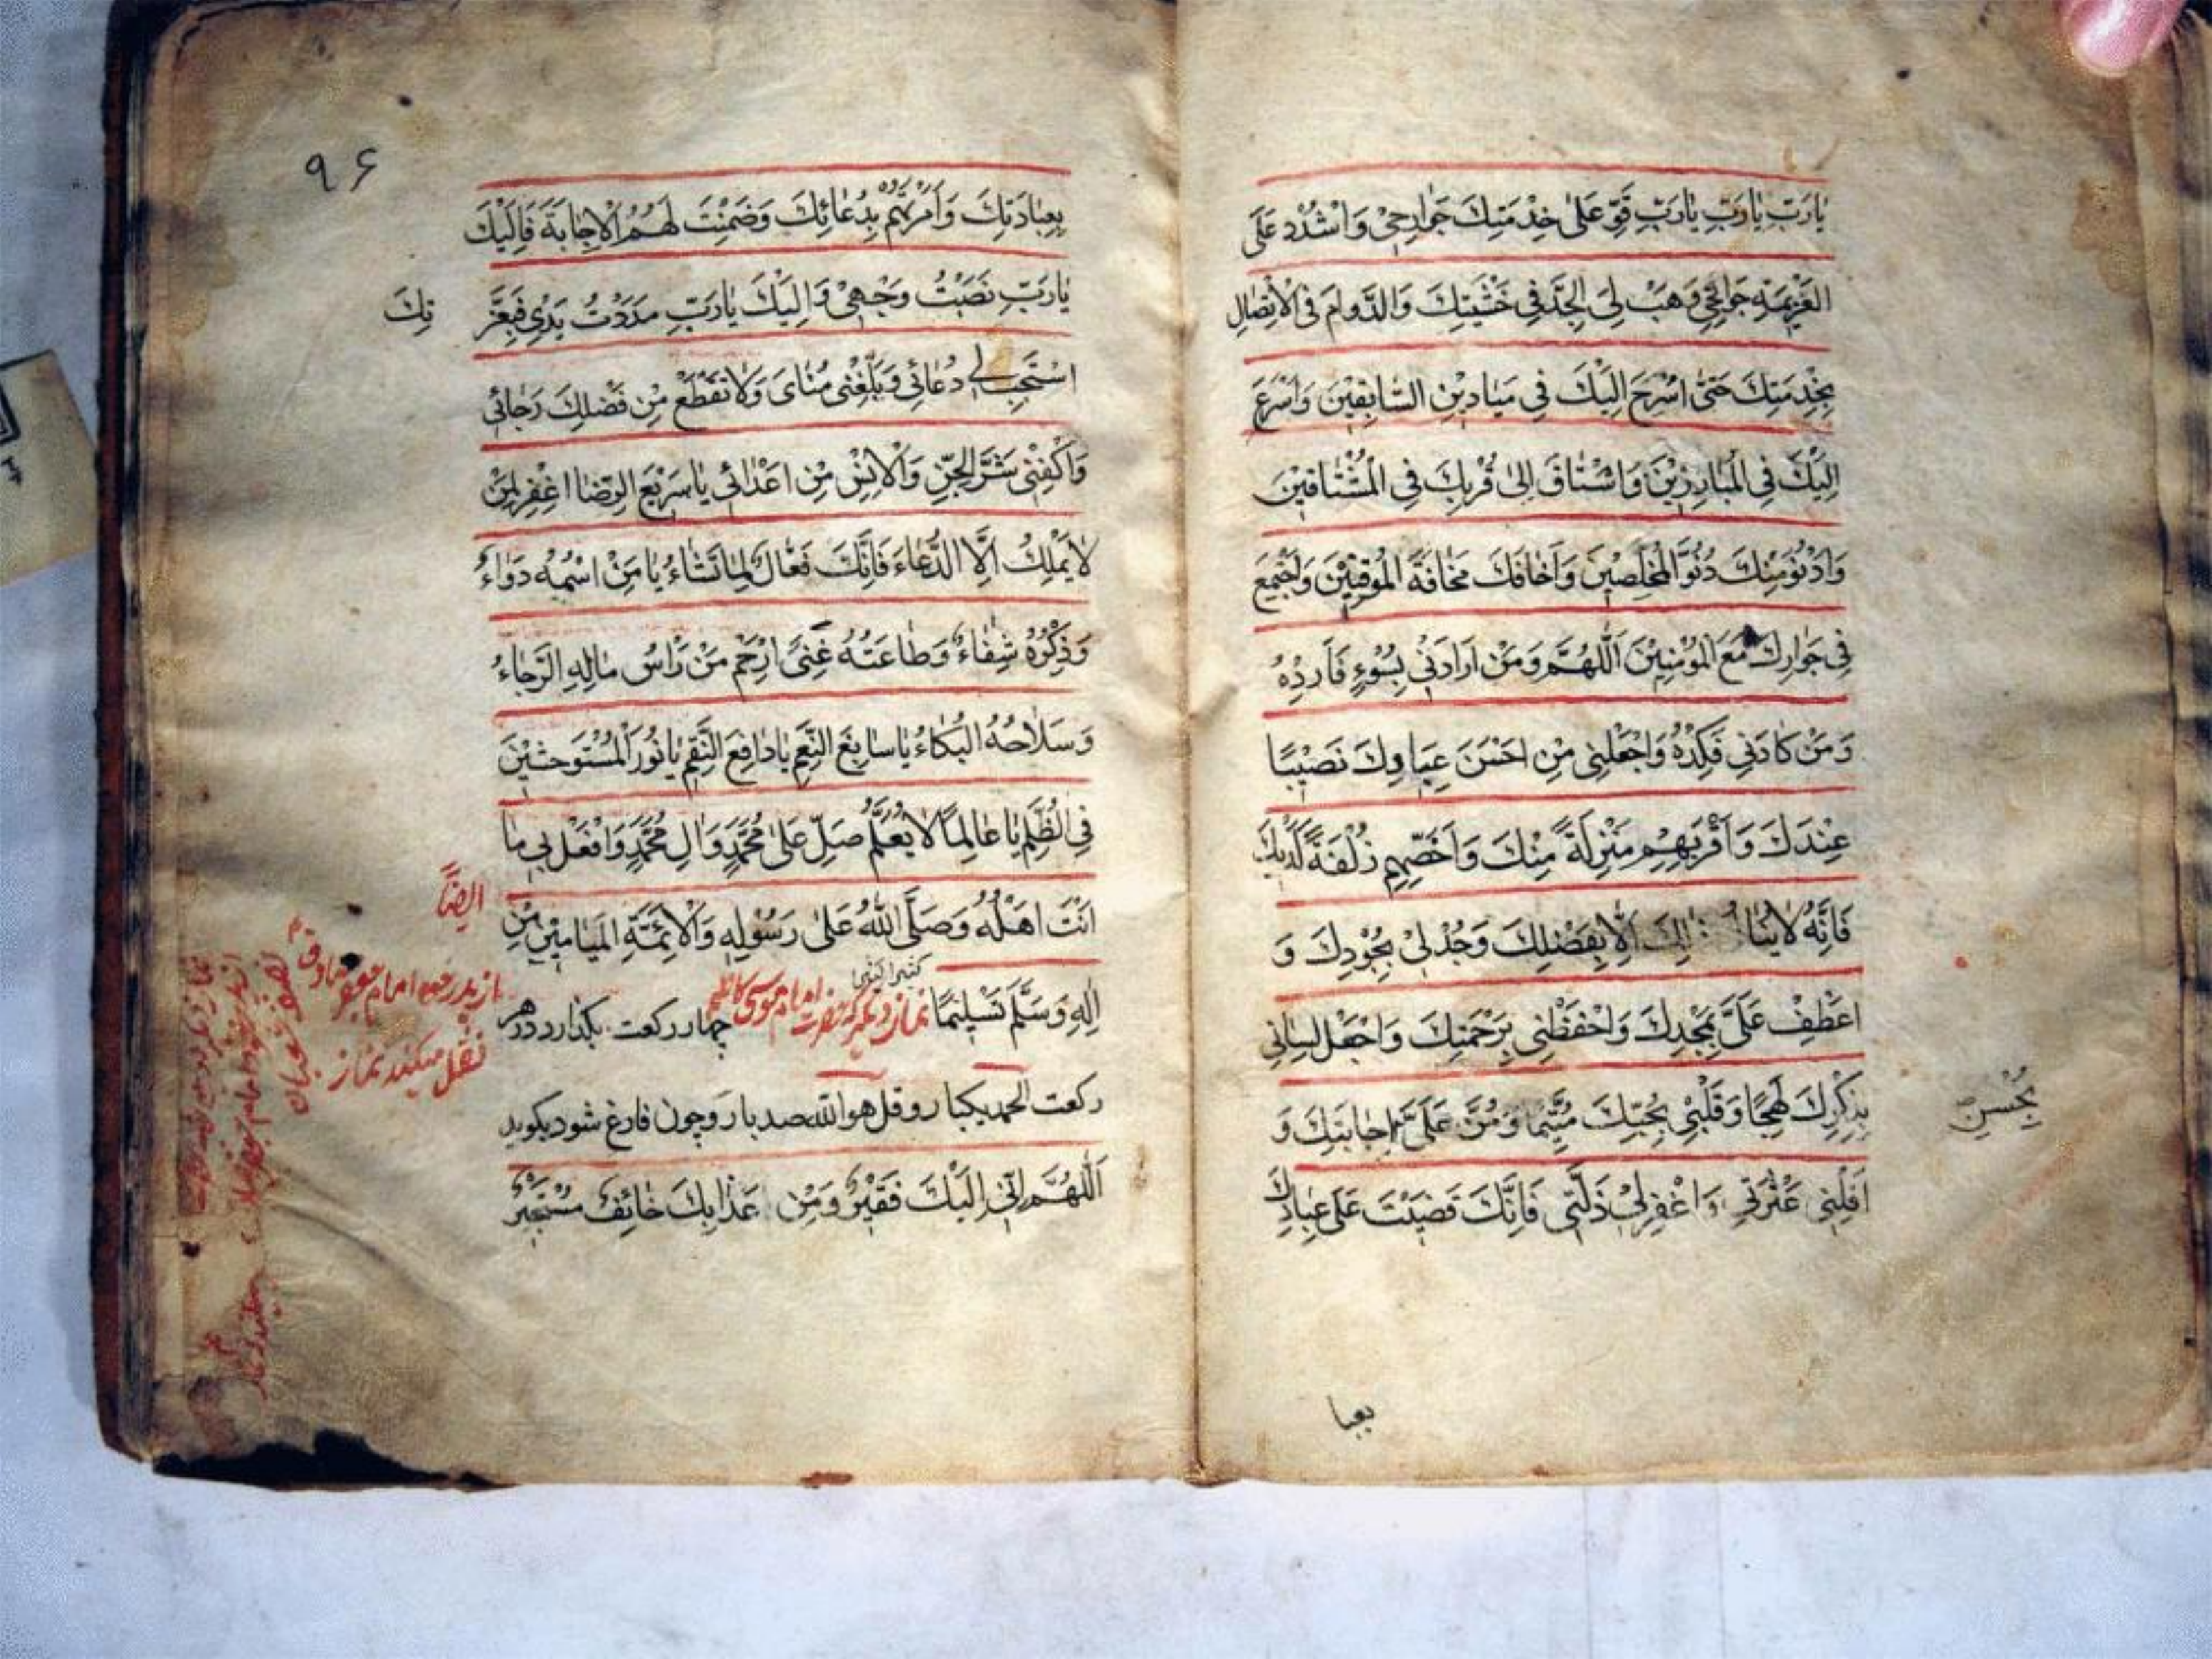 يٰارَبِّ يٰارَبِّ يٰارَبِّ قَوِّ عَلىٰ خِدْمَتِكَ جَوٰارِحِىْ وَاشْدُدْ عَلَى
العَزِيْمَةِ جَوٰانِحِىْ وَهَبْ لِىَ الجِدَّ فِى خَشْيَتِكَ وَالدَّوٰامَ فِى الْاتِّصٰالِ
بِخِدْمَتِكَ حَتّىٰ اَسْرَحَ اِلَيْكَ فِى مَيٰادِيْنِ السّٰابِقِيْنَ وَاُسْرِعَ
اِلَيْكَ فِى المُبٰادِرِيْنَ وَاَشْتٰاقَ اِلىٰ قُرْبِكَ فِى الْمُشْتٰاقِيْنَ
وَاَدْنُوَ مِنْكَ دُنُوَّ الْمُخْلِصِيْنَ وَاَخٰافَكَ مَخٰافَةَ المُوقِنِيْنَ وَاَجْتَمِعَ
فِى جَوٰارِكَ مَعَ المُوْمِنِيْنَ اَللّٰهُمَّ وَمَنْ اَرٰادَنِىْ بِسُوْءٍ فَاَرِدْهُ
وَمَنْ كٰادَنِى فَكِدْهُ وَاجْعَلْنِى مِنْ اَحْسَنِ عِبٰادِكَ نَصِيْبًا
عِنْدَكَ وَاَقْرَبِهِمْ مَنْزِلَةً مِنْكَ وَاَخَصِّهِمْ زُلْفَةً لَدَيْكَ
فَاِنَّهُ لٰا اِلّٰا بِفَضْلِكَ وَجُدْ لِىْ بِجُوْدِكَ وَ
اعْطِفْ عَلَىَّ بِمَجْدِكَ وَاحْفَظْنِى بِرَحْمَتِكَ وَاجْعَلْ لِسٰانِى
بِذِكْرِكَ لَهِجًا وَقَلْبِىْ بِحُبِّكَ مُتَيَّمًا وَمُنَّ عَلَىَّ اِجٰابَتِكَ وَ
بِحُسْنِ
اَقِلْنِى عَثْرَتِى وَاغْفِرْ لِىْ ذَلَّتِى فَاِنَّكَ قَضَيْتَ عَلىٰ عِبٰادِكَ
بعبا
۹۶
بِعِبٰادَتِكَ وَاَمَرْتَهُمْ بِدُعٰائِكَ وَضَمِنْتَ لَهُمُ الْاِجٰابَةَ فَاِلَيْكَ
يٰارَبِّ نَصَبْتُ وَجْهِىْ وَاِلَيْكَ يٰارَبِّ مَدَدْتُ يَدِىْ فَبِعِزَّ
تِكَ
اسْتَجِبْ لِى دُعٰائِى وَبَلِّغْنِى مُنٰاىَ وَلٰا تَقْطَعْ مِنْ فَضْلِكَ رَجٰائِى
وَاكْفِنِى شَرَّ الجِنِّ وَالْاِنْسِ مِنْ اَعْدٰائِى يٰا سَرِيْعَ الرِّضٰا اغْفِرْ لِمَنْ
لٰا يَمْلِكُ اِلَّا الدُّعٰاءَ فَاِنَّكَ فَعّٰالٌ لِمٰا تَشٰاءُ يٰا مَنْ اسْمُهُ دَوٰاءٌ
وَذِكْرُهُ شِفٰاءٌ وَطٰاعَتُهُ غِنىً اِرْحَمْ مَنْ رَاْسُ مٰالِهِ الرَّجٰاءُ
وَسَلٰاحُهُ البُكٰاءُ يٰا سٰابِغَ النِّعَمِ يٰا دٰافِعَ النِّقَمِ يٰا نُوْرَ الْمُسْتَوحِشِيْنَ
فِى الظُّلَمِ يٰا عٰالِمًا لٰا يُعَلَّمُ صَلِّ عَلىٰ مُحَمَّدٍ وَاٰلِ مُحَمَّدٍ وَافْعَلْ بِى مٰا
اَنْتَ اَهْلُهُ وَصَلَّى اللّٰهُ عَلىٰ رَسُوْلِهِ وَالْاَئِمَّةِ المَيٰامِيْنَ مِنْ
كثيرا كثيرا
اٰلِهِ وَسَلَّمَ تَسْلِيْمًا نماز ديگر كه حضرت امام موسى كاظم چهار ركعت بكذارد در هر
ايضاً
از پدر خود امام جعفر صادق ع
نقل ميكند نماز
ركعت الحمد يكبار و قل هو الله صد بار و چون فارغ شود بكويد
اَللّٰهُمَّ اِنِّى اِلَيْكَ فَقِيْرٌ وَمِنْ عَذٰابِكَ خٰائِفٌ مُسْتَجِيْرٌ